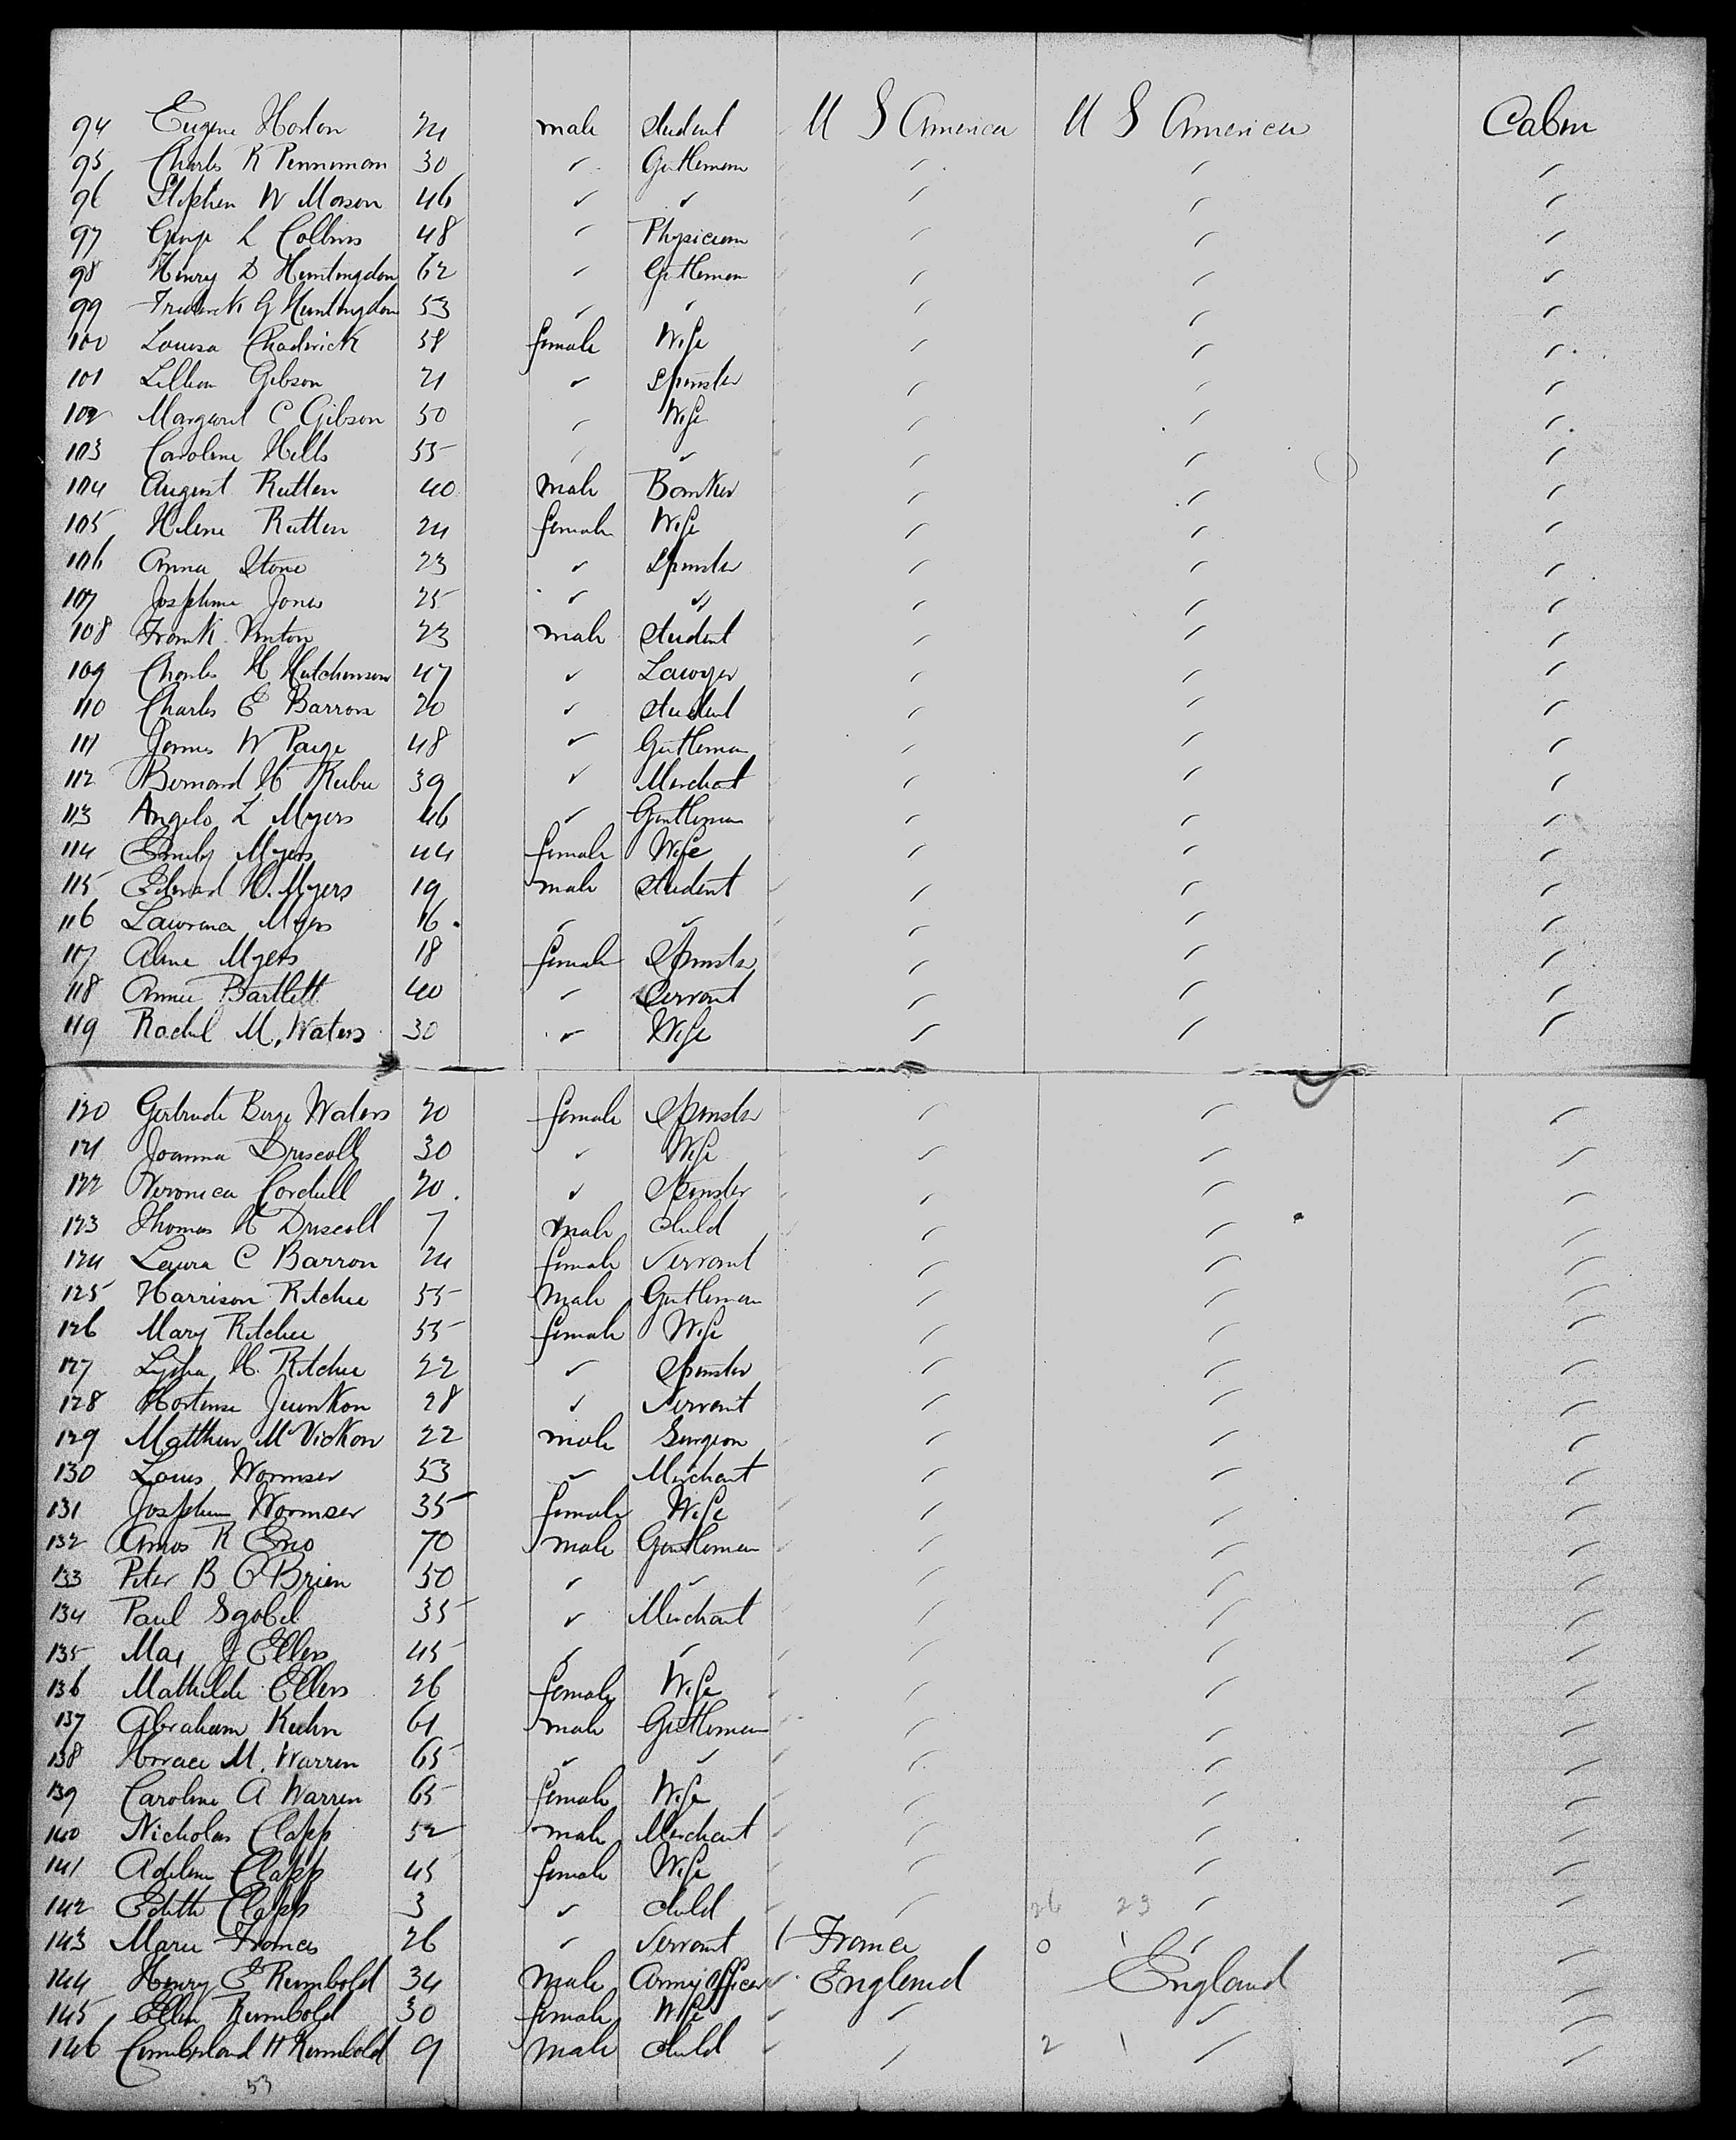 94 Eugene Horton 24 male Student U S America U S America Cabin
95 Charles R Penniman 30 " Gentleman " " "
96 Stephen W Mason 46 " " " " "
97 George L Collins 48 " Physician " " "
98 Henry D Huntingdon 62 " Gentleman " " "
99 Frederick G Huntingdon 53 " " " " "
100 Louisa Chadwick 58 female Wife " " "
101 Lillian Gibson 21 " Spinster " " "
102 Margaret C Gibson 50 " Wife " " "
103 Caroline Hills 55 " " " " "
104 August Rutten 40 male Banker " " "
105 Helene Rutten 24 female Wife " " "
106 Anna Stone 23 " Spinster " " "
107 Josephine Jones 25 " " " " "
108 Frank Vinton 23 male Student " " "
109 Charles H Hutchinson 47 " Lawyer " " "
110 Charles E Barron 20 " Student " " "
111 James W Paige 48 " Gentleman " " "
112 Bernard H 39 " Merchant " " "
113 Angelo L Myers 46 " Gentleman " " "
114 Emily Myers 44 female Wife " " "
115 Edward H. Myers 19 male Student " " "
116 Lawrence Myers 16 " " " " "
117 Aline Myers 18 female Spinster " " "
118 Annie Bartlett 40 " Servant " " "
119 Rachel M. Waters 30 " Wife " " "
120 Gertrude Waters 20 female Spinster " " "
121 Joanna Driscoll 30 " Wife " " "
122 Veronica Cordull 20 " Spinster " " "
123 Thomas H Driscoll 7 male Child " " "
124 Laura C Barron 24 female Servant " " "
125 Harrison Ritchie 55 Male Gentleman " " "
126 Mary Ritchie 55 female Wife " " "
127 Lydia H. Ritchie 22 " Spinster " " "
128 Hortense 28 " Servant " " "
129 Matthew McVickon 22 male Surgeon " " "
130 Louis Wormser 53 " Merchant " " "
131 Josephine Wormser 35 female Wife " " "
132 Amos R Eno 70 male Gentleman " " "
133 Peter B O'Brien 50 " " " " "
134 Paul Sgobel 35 " Merchant " " "
135 Max J Ellers 45 " " " " "
136 Mathilde Ellers 26 female Wife " " "
137 Abraham Kuhn 61 male Gentleman " " "
138 Horace M. Warren 65 " " " " "
139 Caroline A Warren 65 female Wife " " "
140 Nicholas Clapp 52 male Merchant " " "
141 Adeline Clapp 45 female Wife " " "
142 Edith Clapp 3 " Child " 26 23 " "
143 Marie Frances 26 " Servant 1 France 0 1 " "
144 Henry E Rumbold 34 Male Army Officer England England "
145 Ellen Rumbold 30 female Wife " " "
146 Cumberland H Rumbold 9 Male Child " 2 1 " "
53